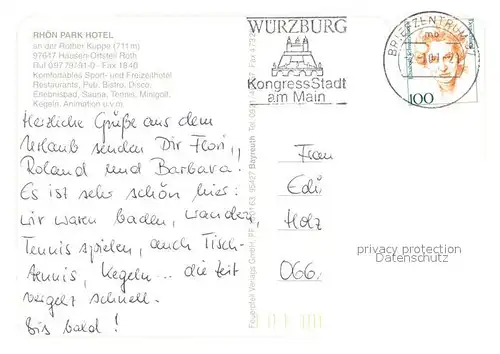 RHÖN PARK HOTEL
an der Rother Kuppe (711 m)
97647 Hausen-Ortsteil Roth
Ruf 09779/91-0 - Fax 1840
Komfortables Sport- und Freizeithotel
Restaurants, Pub, Bistro, Disco,
Erlebnisbad, Sauna, Tennis, Minigolf,
Kegeln, Animation u.v.m.
WÜRZBURG
KongressStadt
am Main
BRIEFZENTRUM 97
mb
100
Herzliche Grüße aus dem
Urlaub senden Dir Flori,
Roland und Barbara!
Es ist sehr schön hier:
Wir waren baden, wandern,
Tennis spielen, auch Tisch-
tennis, Kegeln... die Zeit
vergeht schnell.
Bis bald!
Bayreuth
Frau
Edi
Holz
066
privacy protection
Datenschutz